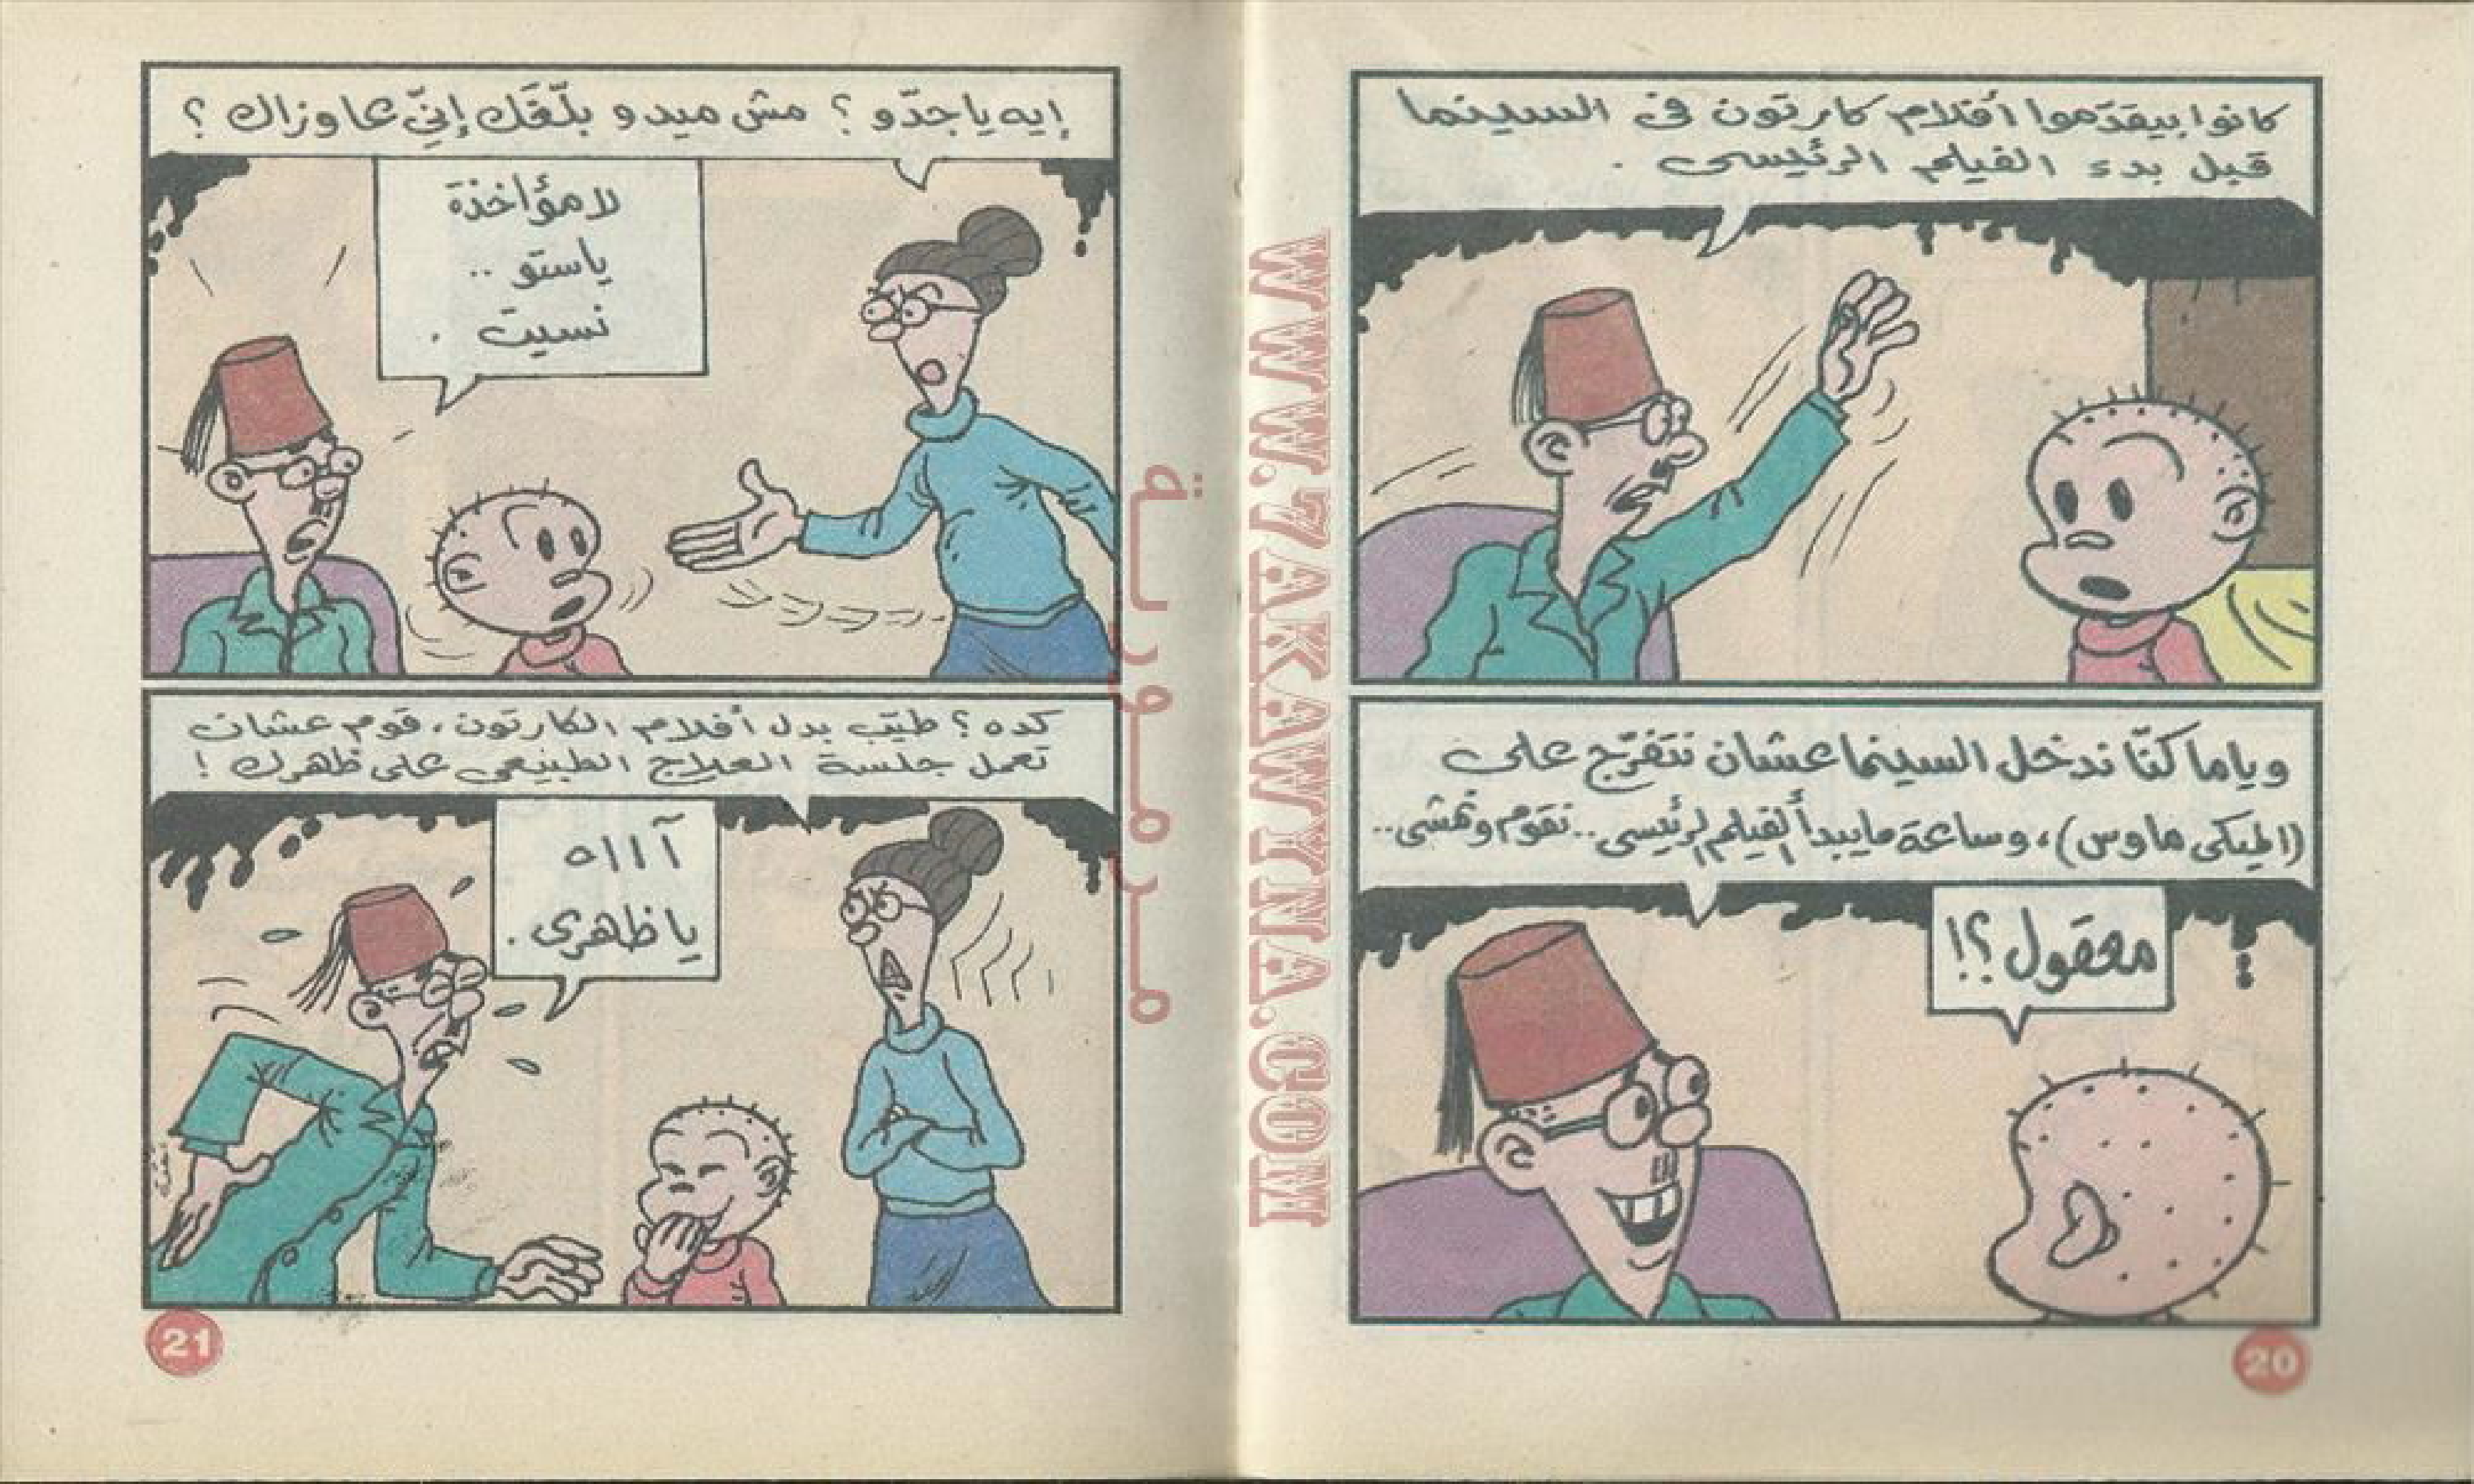 كانوا بيقدّموا أفلام كارتون فى السينما
قبل بدء الفيلم الرئيسى .
وياما كنّا ندخل السينما عشان نتفرّج على
(الميكى ماوس)، وساعة مايبدأ الفيلم الرئيسى .. نقوم ونمشى ..
معقول ؟!
20
إيه ياجدّو ؟ مش ميدو بلّغَك إنّي عاوزاك ؟
لا مؤاخذة
ياستو ..
نسيت .
كده ؟ طيّب بدل أفلام الكارتون، قوم عشان
تعمل جلسة العلاج الطبيعى على ظهرك !
آ ا ا ه
يا ظهرى .
21
مرمورية
WWW.7AKAWYNA.COM